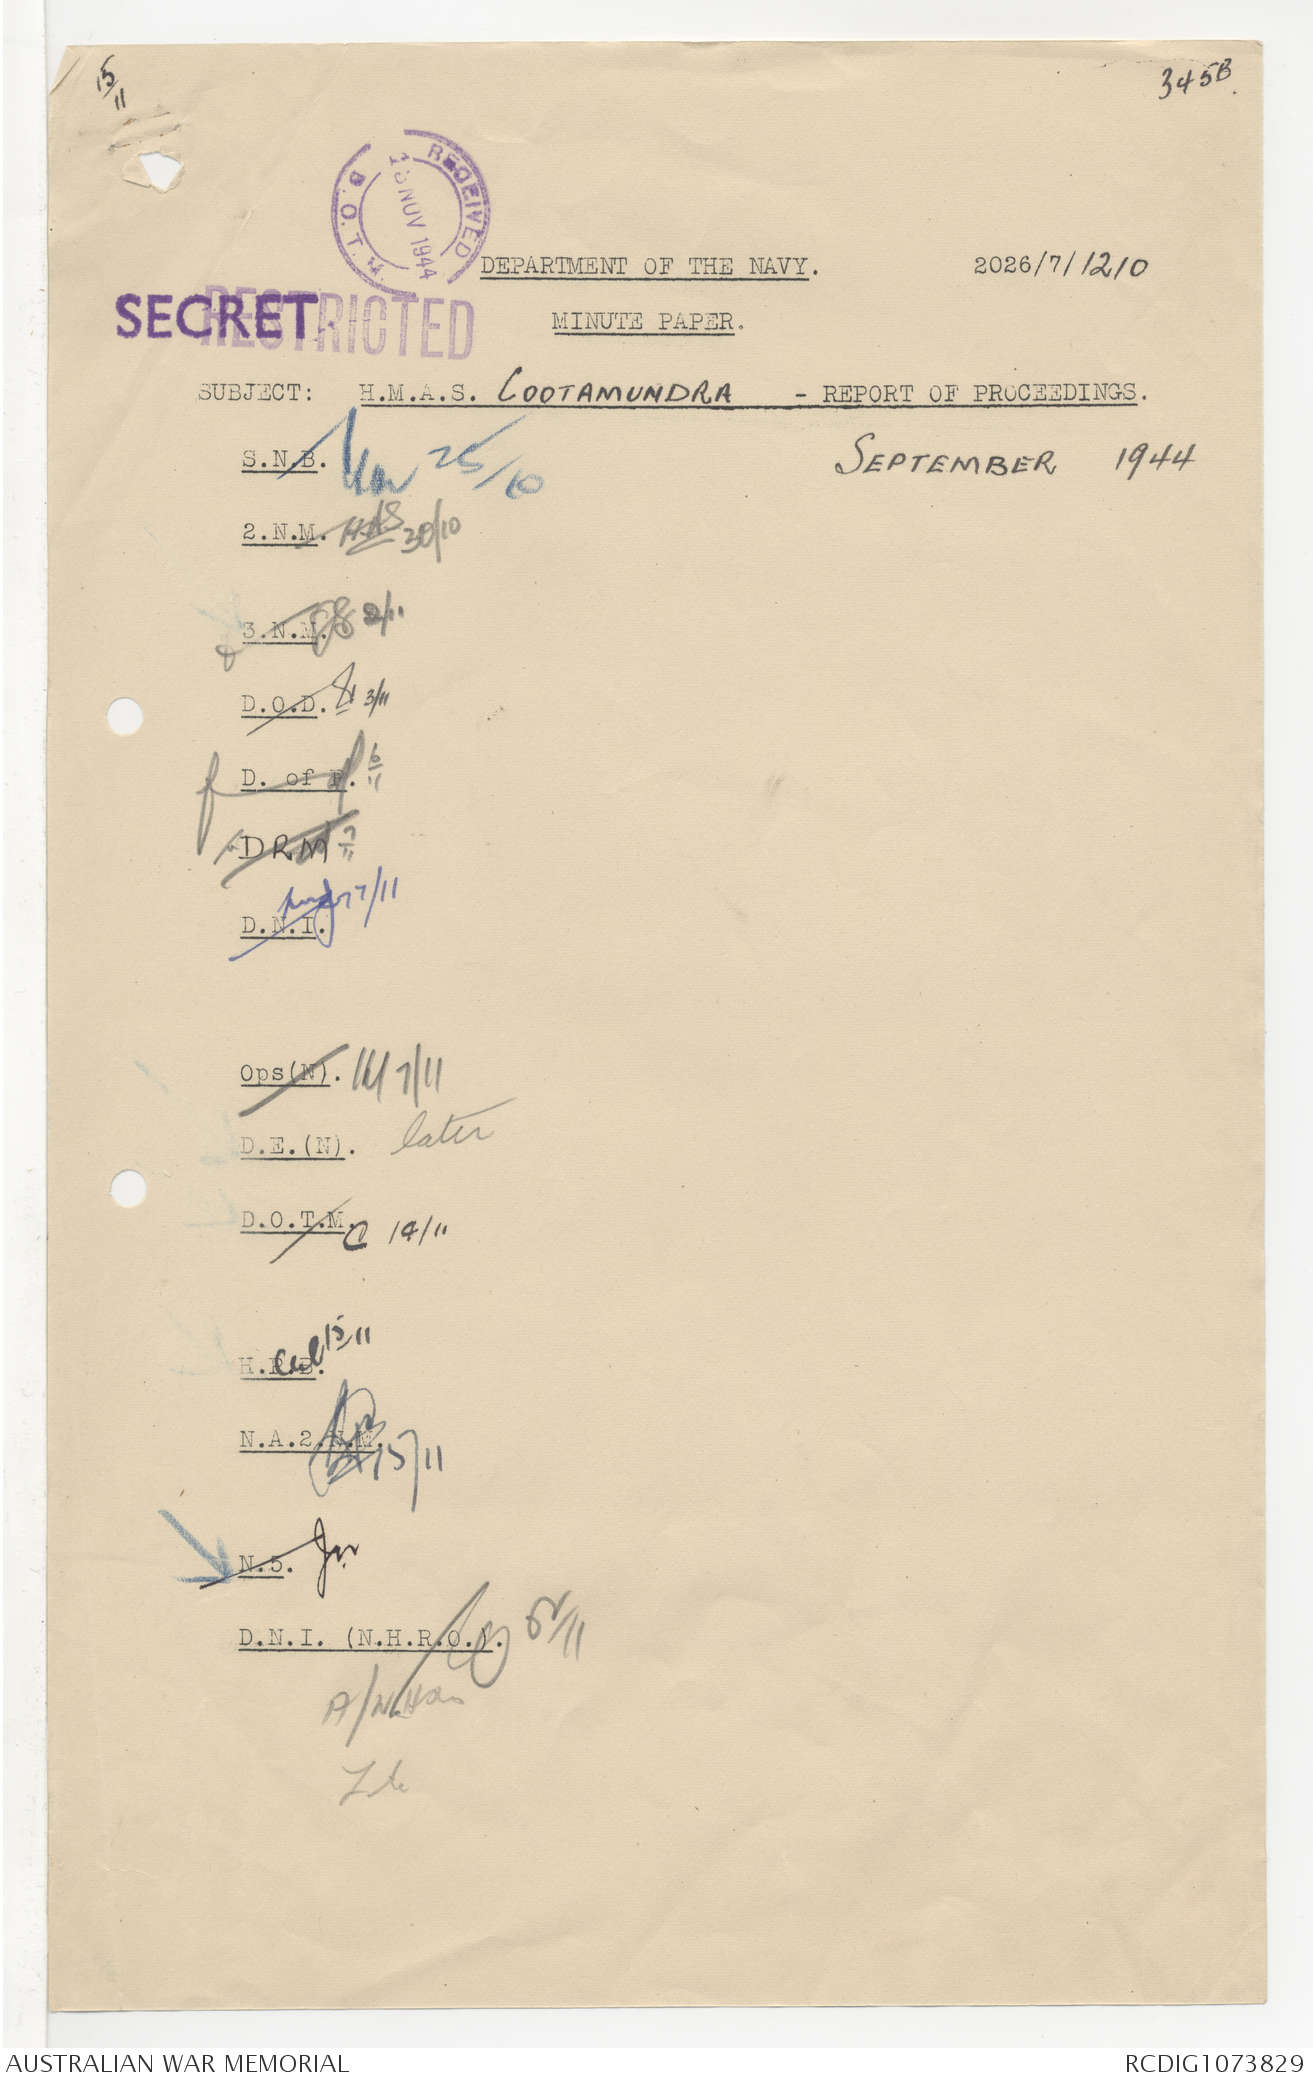 15/11
345B.
RECEIVED
13 NOV 1944
DEPARTMENT OF THE NAVY.
2026/7/1210
SECRET RESTRICTED
MINUTE PAPER.
SUBJECT: H.M.A.S. COOTAMUNDRA - REPORT OF PROCEEDINGS.
SEPTEMBER 1944
S.N.B. 25/10
2.N.M. HAS 30/10
3.N.M. 2/11
D.O.D. 3/11
D. of P. 6/11
DRM 7/11
D.N.I. 7/11
Ops(N). 7/11
D.E.(N). later
D.O.T.M. 14/11
H.R.B. 15/11
N.A.2.N.M. 15/11
N.5.
D.N.I. (N.H.R.O.).
AUSTRALIAN WAR MEMORIAL
RCDIG1073829